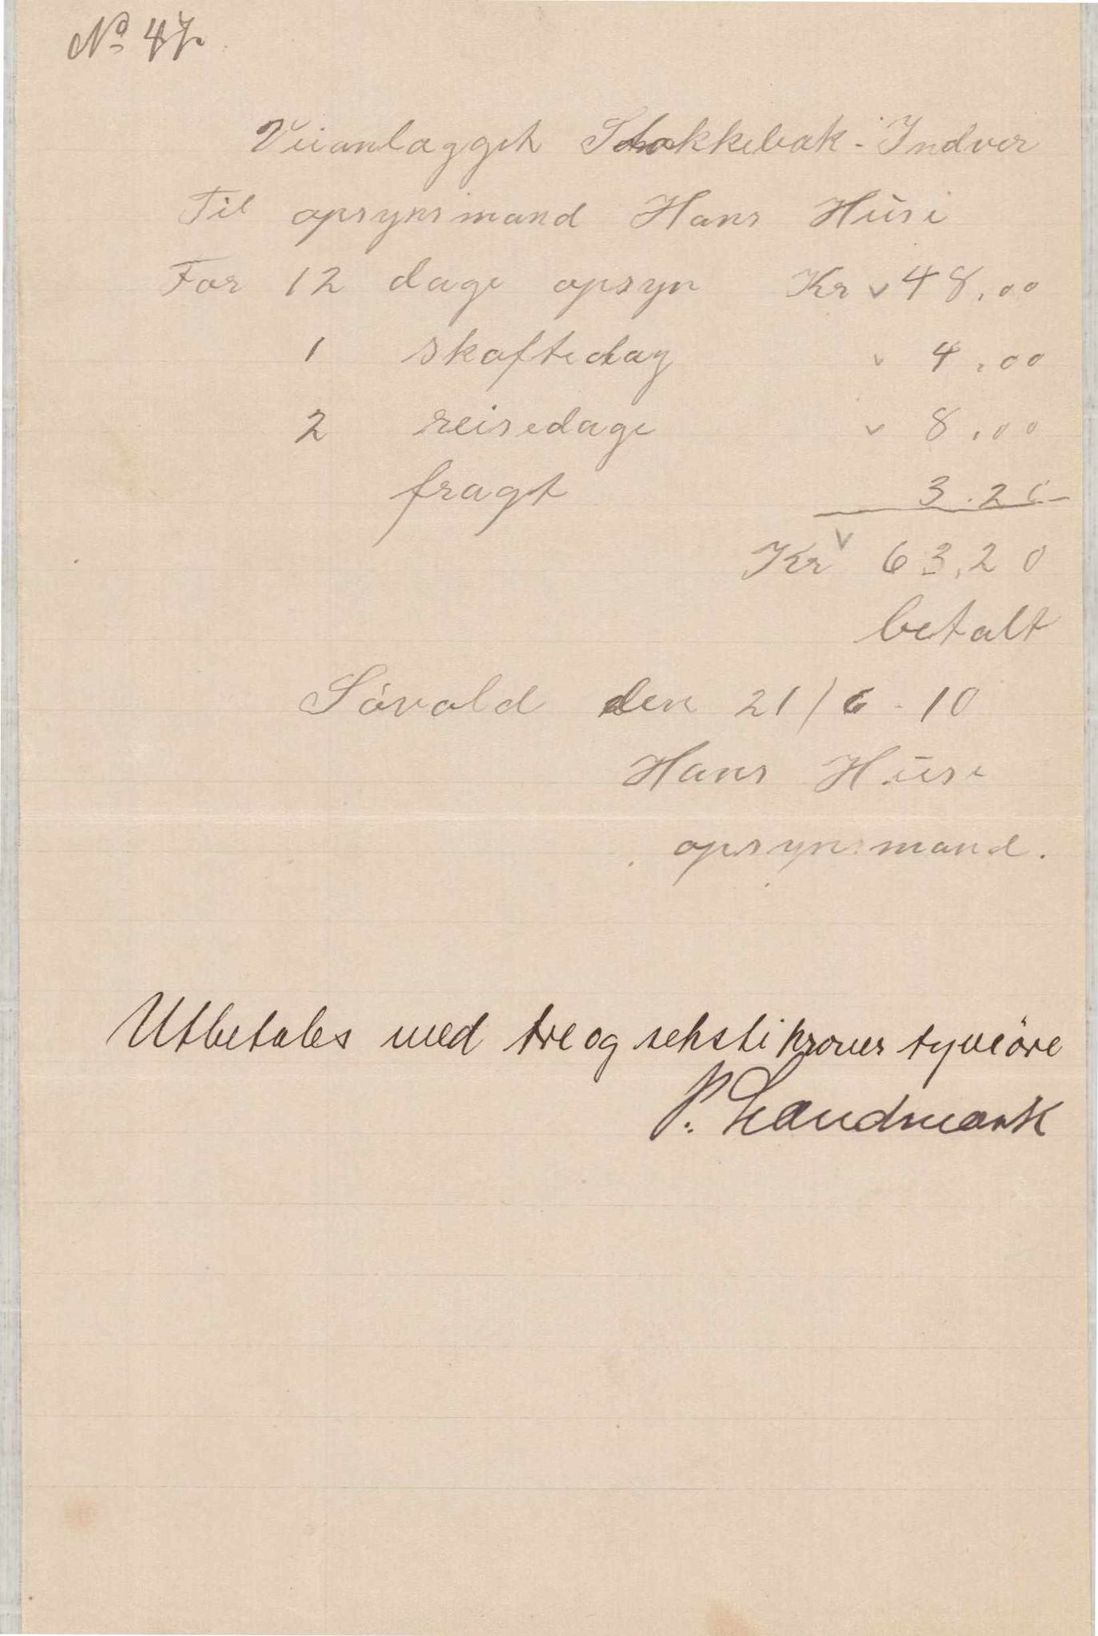 No 47.
Veianlægget Stokkebæk - Indver
Til opsynsmand Hans Husi
For 12 dage opsyn Kr 48,00
1 skaftedag 4,00
2 reisedage 8,00
fragt 3.20
Kr 63,20
betalt
Søvold den 21/6-10
Hans Husi
opsynsmand.
Utbetales med tre og seksti kroner tyve øre
P. Landmark